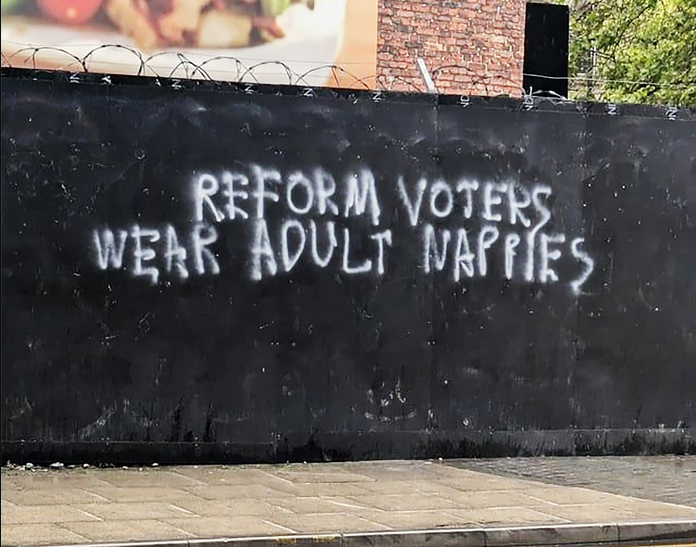 REFORM VOTERS
WEAR ADULT NAPPIES